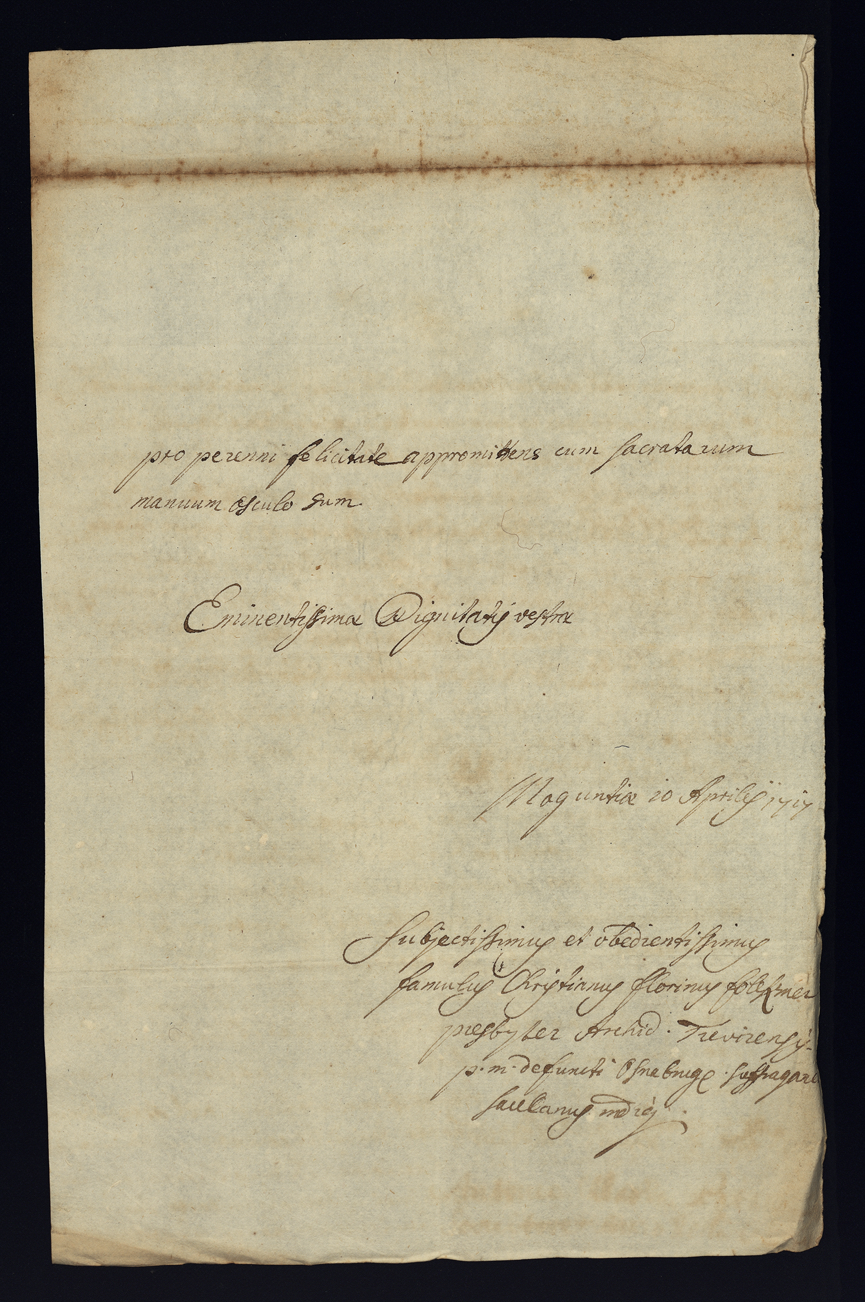 pro perenni felicitate appromittens cum sacratarum
manuum osculo sum.
Eminentissimæ Dignitatis vestræ
Moguntiæ 20 Aprilis 1717
Subjectissimus et obedientissimus
famulus Christianus florinus
presbyter Archid. Trevirensis
p. m. defuncti Osnabruge. suffragani
sacellanus indig.